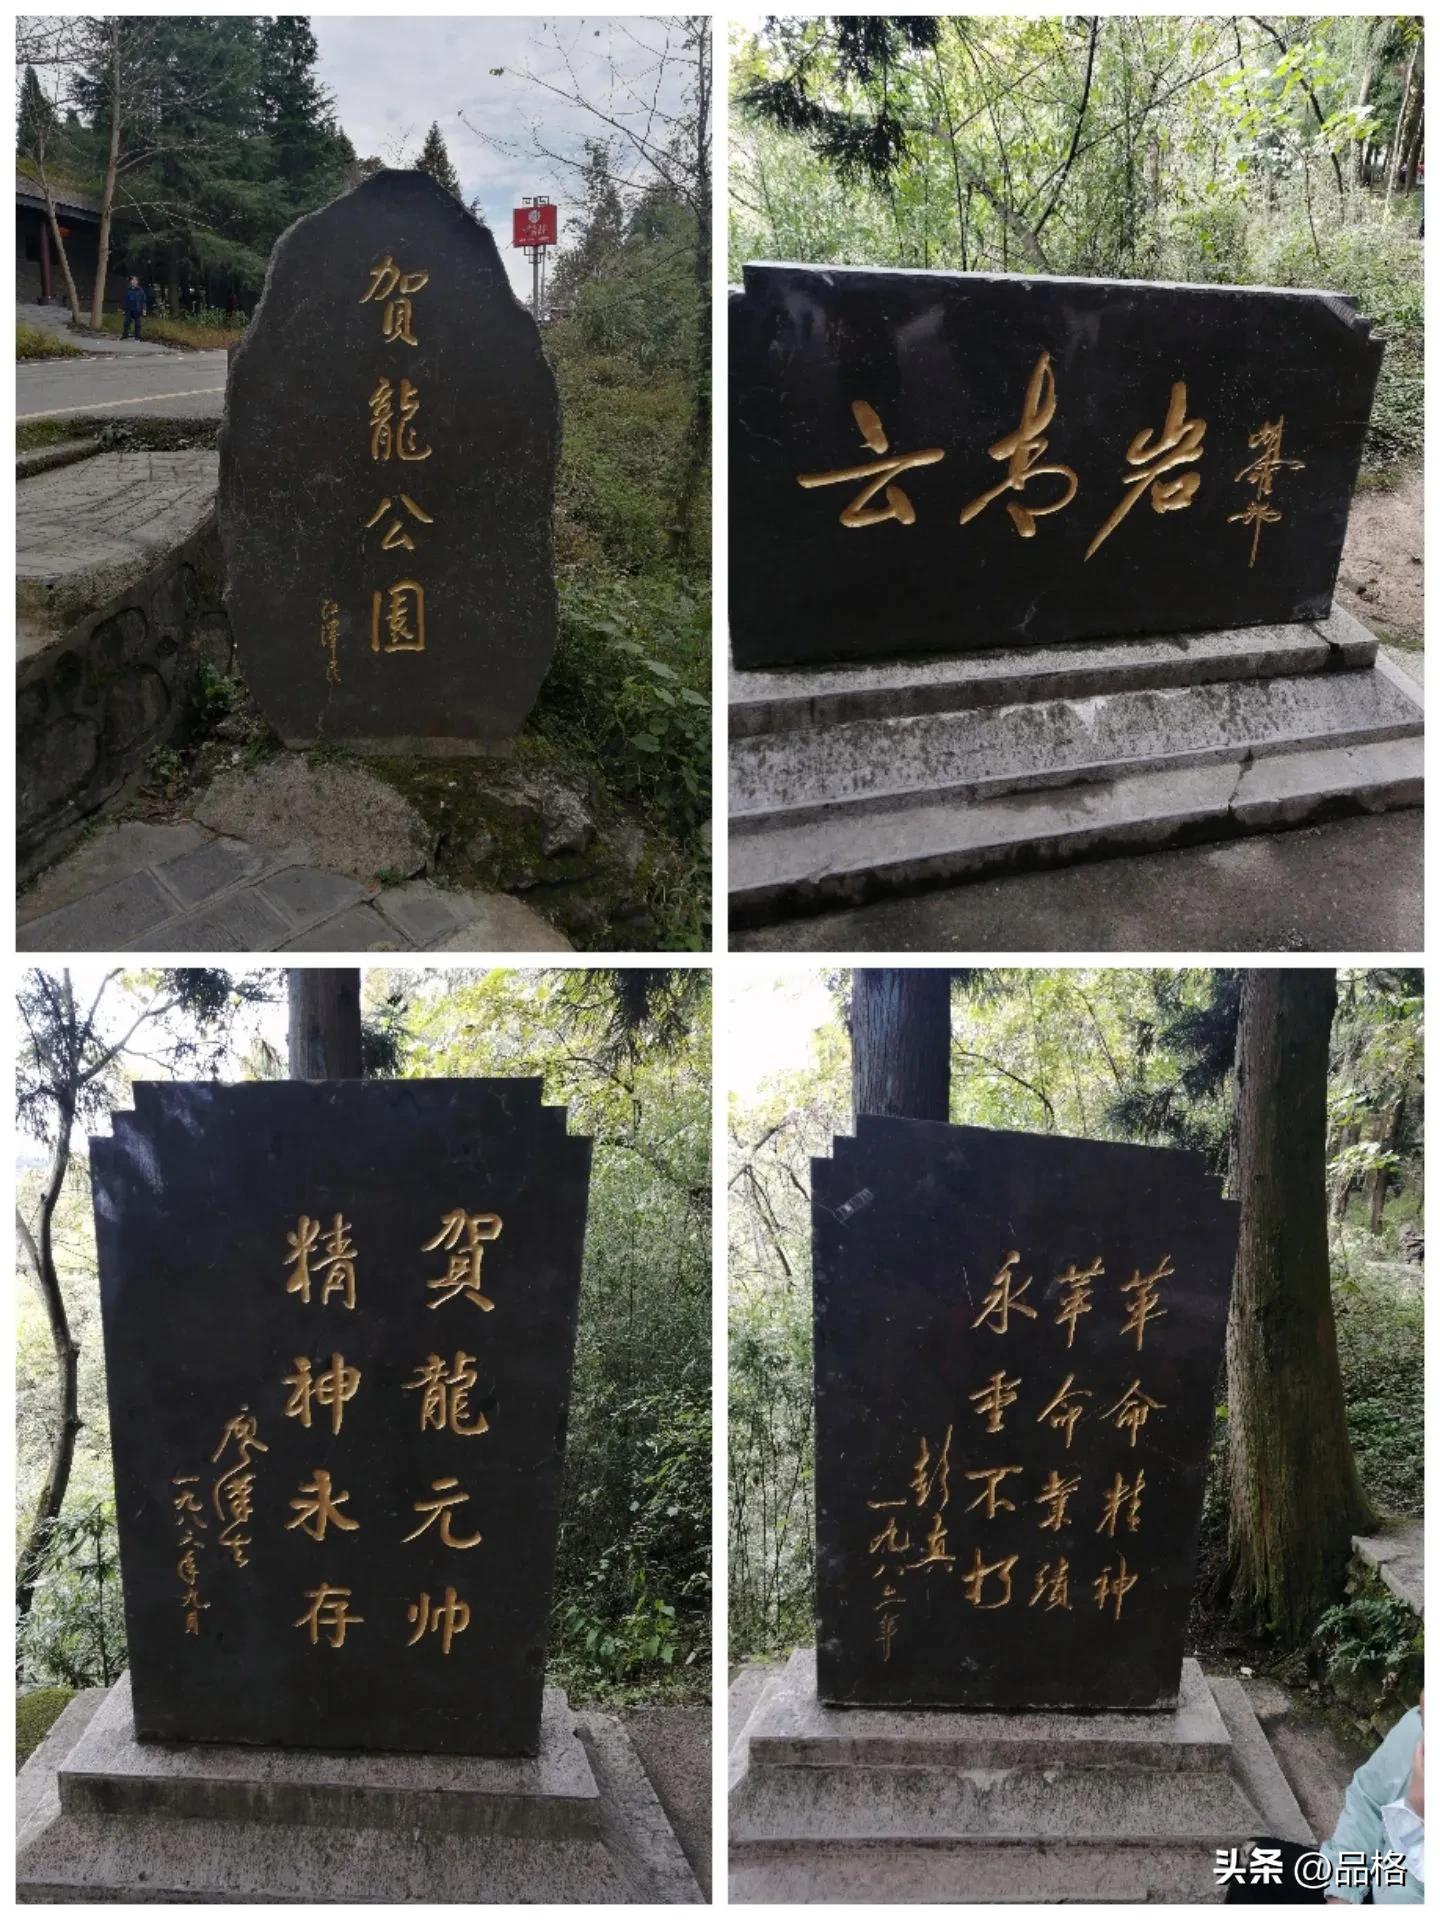 賀龍公園
江澤民
云青岩
賀龍元帅
精神永存
廖漢生
一九八六年九月
革命精神
革命業績
永垂不朽
彭真
一九八六年
头条 @品格